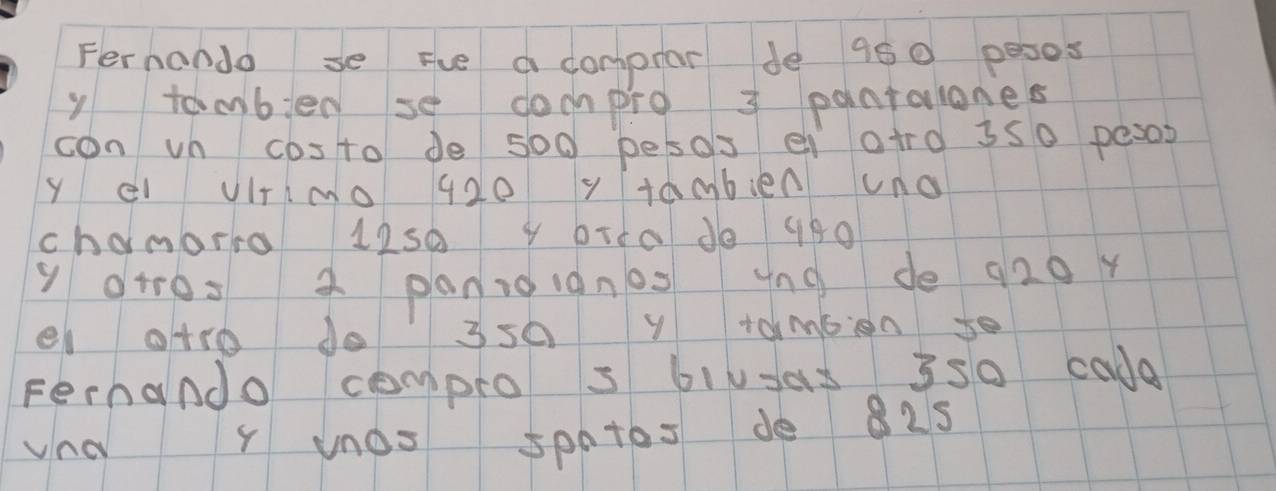 Fernando se Fue a comprar de 950 pesos
y tambien se compro 3 pantalones
con un costo de 500 pesos el otro 350 pesos
y el ultimo 420 y tambien una
chamarra 1250 y otra de
y otros 2 de 920 y
el otro de 350 y tambien se
Fernando compro 5 blusas 350 cada
una y unos spatos de 825